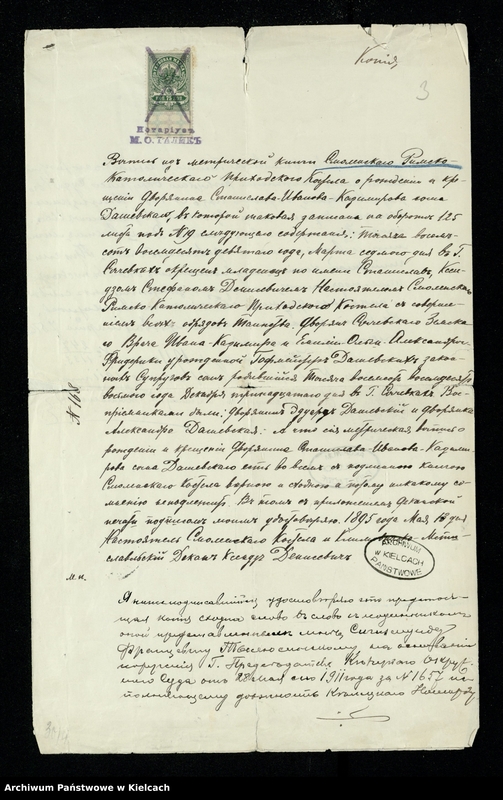 Копія
3
Нотаріусъ
М. О. ГАЛЕКЪ
Выпись изъ метрической книги Смоленскаго Римско-
Католическаго Приходскаго Костела о рожденіи и кре-
щеніи Дворянина Станислава-Иванова-Кадимирова сына
Дашевскаго, въ которой таковая записана на оборотѣ 125
листа подъ № 19 слѣдующаго содержанія: Тысяча восемь-
сотъ восемьдесятъ девятаго года, Марта седьмого дня въ Г.
Сычевкахъ окрещенъ младенецъ по имени Станиславъ, Ксен-
дзомъ Стефаномъ Денисевичемъ Настоятелемъ Смоленскаго
Римско Католическаго Приходскаго Костела съ соверше-
ніемъ всѣхъ обрядовъ Таинства. Дворянъ Сычевскаго Земска-
го Врача Ивана-Кадимира и Ольги-Александры-
Фридерики урожденной Дашевскихъ закон-
ныхъ Супруговъ сынъ родившійся Тысяча восемьсотъ восемьдесятъ
восьмого года Декабря тринадцатаго дня въ Г. Сычевкахъ. Вос-
пріемниками были: Дворянинъ Эдуардъ Дашевскій и Дворянка
Александра Дашевская. А что сія метрическая выпись о
рожденіи и крещеніи Дворянина Станислава-Иванова-Кадими-
рова сына Дашевскаго есть во всемъ съ подлинною книгою
Смоленскаго Костела вѣрною и сходною и потому никакому со-
мнѣнію неподлежитъ. Въ томъ съ приложеніемъ
печати подписомъ моимъ удостовѣряю. 1895 года Мая 12 дня
Настоятель Смоленскаго Костела и Мсти-
славльскій Деканъ Ксендзъ Денисевичъ
М. п.
№ 168
ARCHIWUM
w KIELCACH
PAŃSTWOWE
Я нижеподписавшійся, удостовѣряю что предстоя-
щая копія сходна слово въ слово съ подлинникомъ
оной представленнымъ мнѣ, Сигизмунду
Францевичу на основаніи
порученія Г. Предсѣдателя Окруж-
наго Суда отъ 28 мая сего 1911 года за № 1657 ис-
полняющему должность Нотаріуса
Archiwum Państwowe w Kielcach